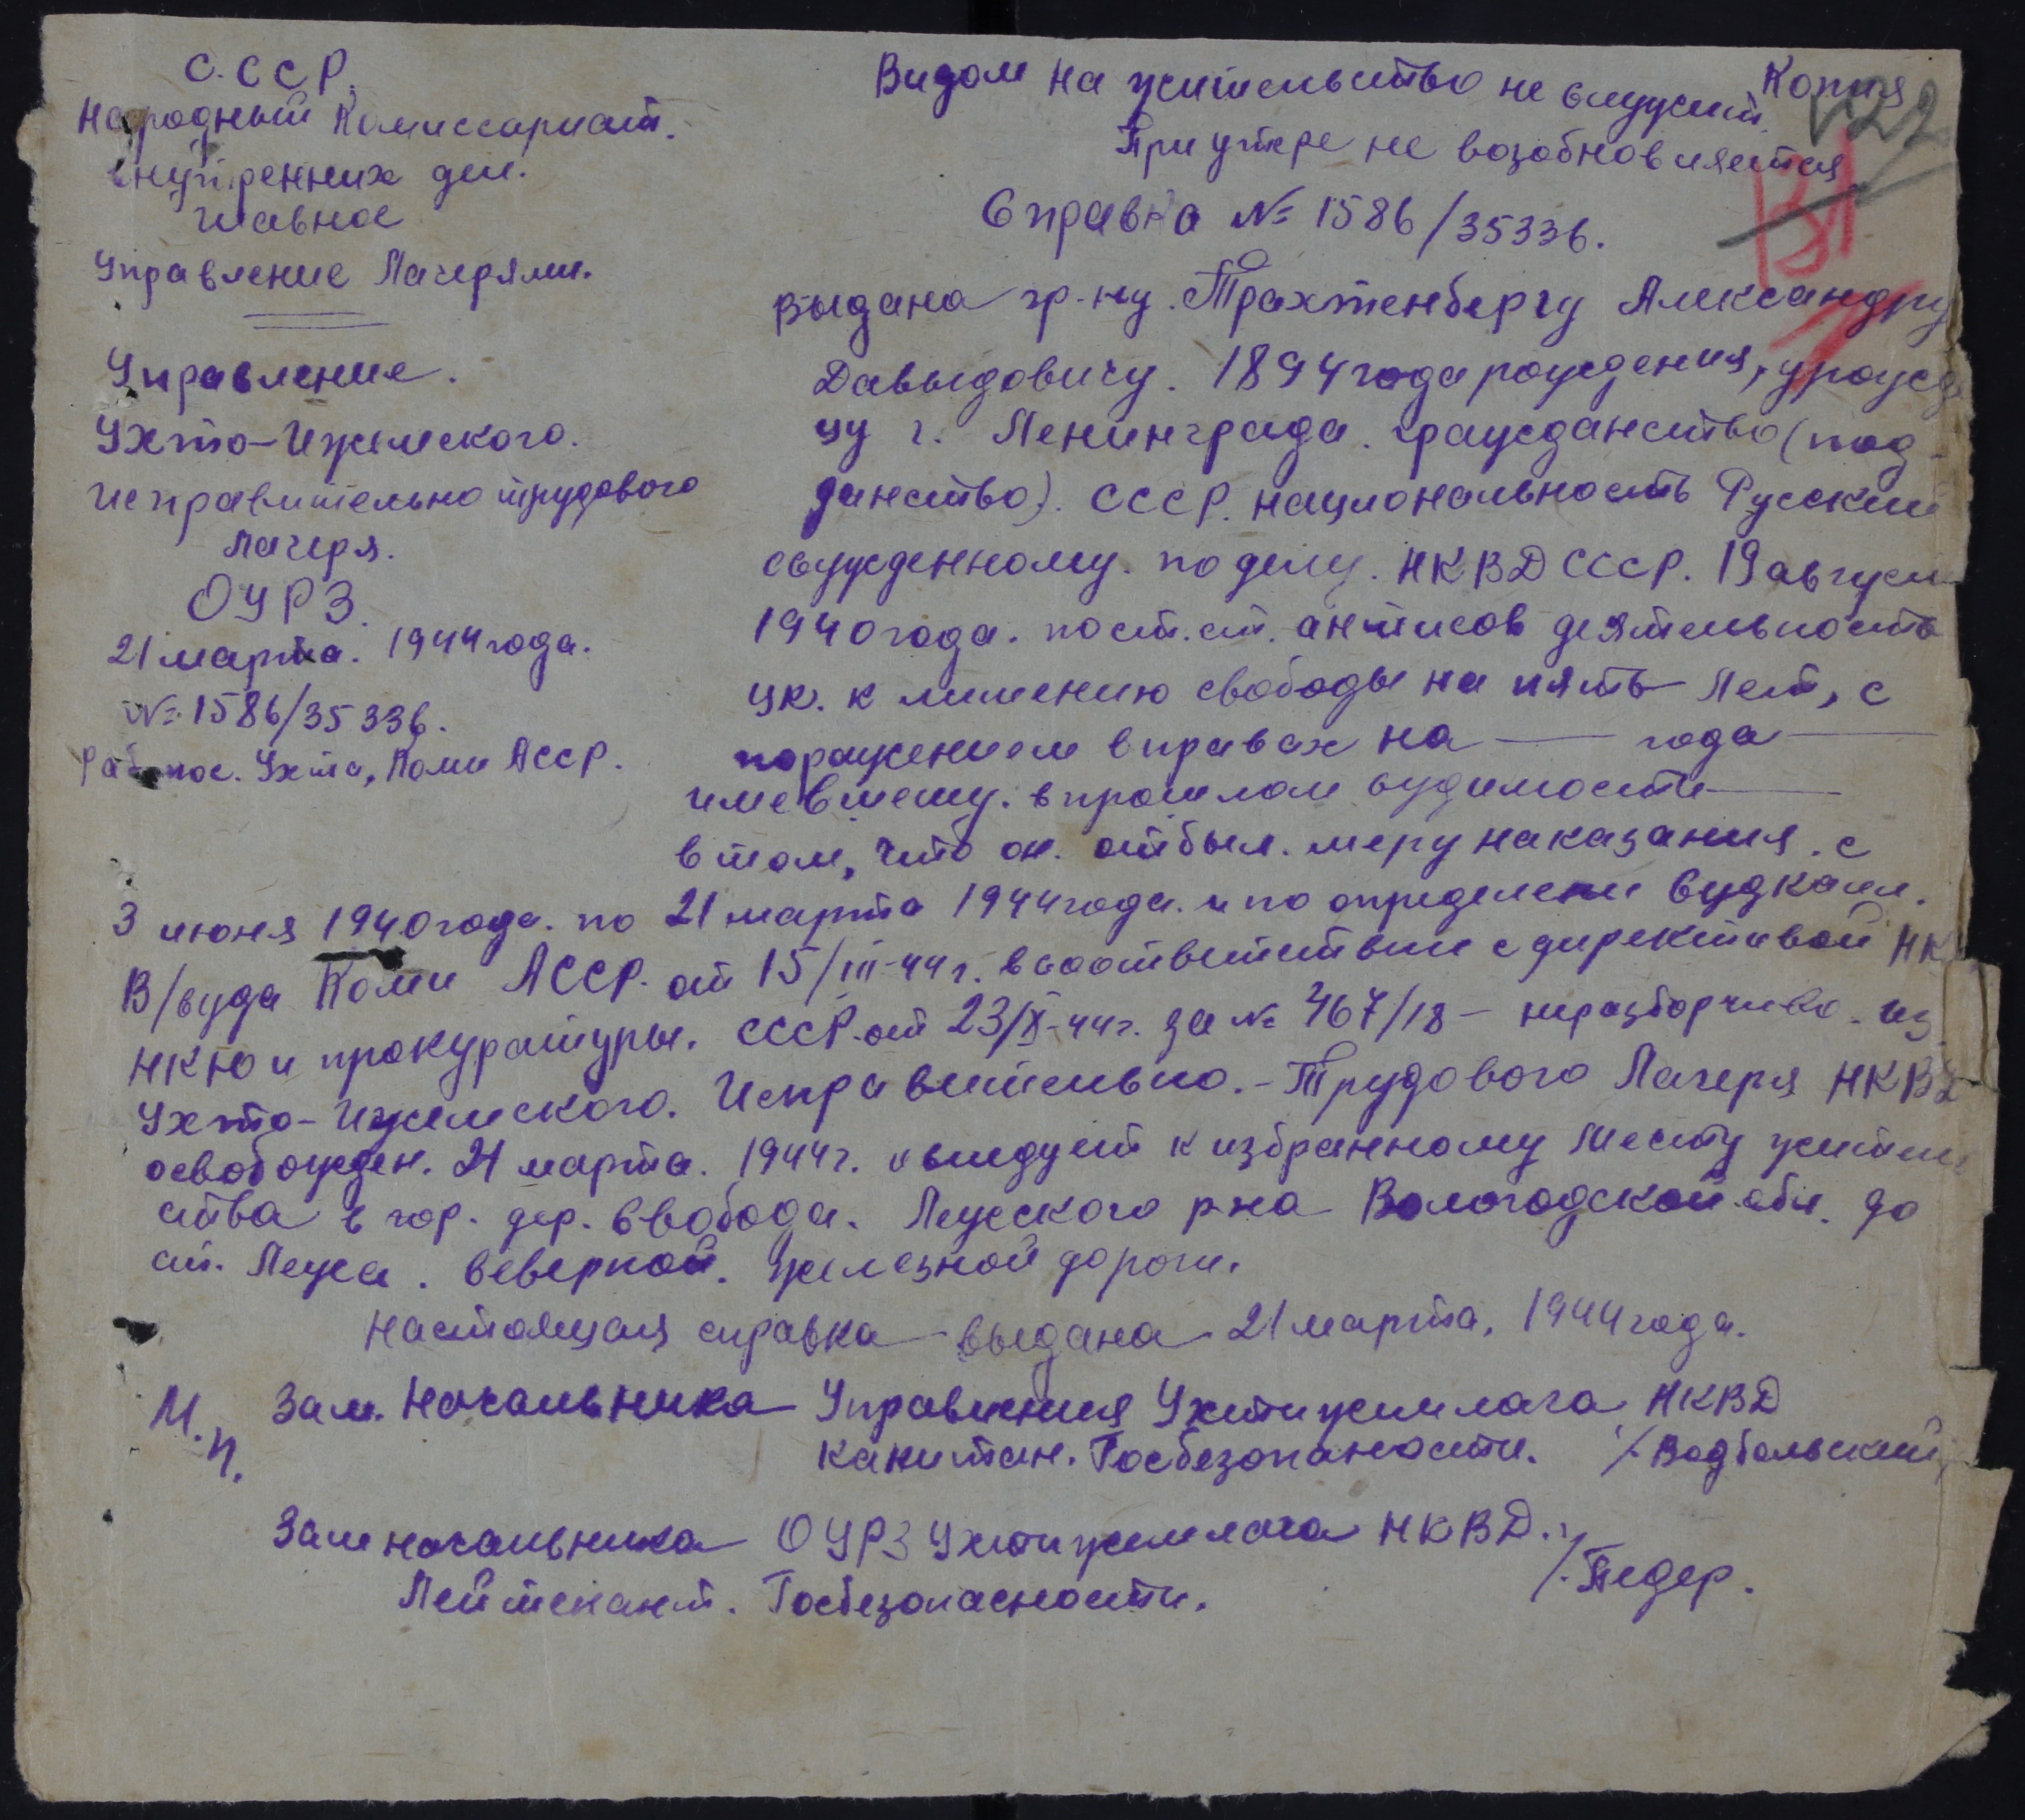 С.ССР.
Народный Комиссариат.
внутренних дел.
главное
Управление Лагерями.
Управление.
Ухто-Ижемского.
исправительно трудового
лагеря.
ОУРЗ.
21 марта. 1944 года.
№ 1586/35336.
Раб. пос. Ухта, Коми АССР.
Копия
22
Видом на жительство не служит.
При утере не возобновляется
Справка № 1586/35336.
Выдана гр-ну. Трахтенбергу Александру
Давыдовичу. 1894 года рождения, урожд
цу г. Ленинграда. гражданство (под-
данство). СССР. национальность Русский
осужденному. по делу. НКВД СССР. 19 август
1940 года. по ст. ст. антисов деятельность
УК. к лишению свободы на пять лет, с
поражением в правах на — года —
имевшему. в прошлом судимости —
в том, что он. отбыл. меру наказания. с
3 июня 1940 года. по 21 марта 1944 года. и по определени Судколл.
В/суда Коми АССР. от 15/III-44 г. в соответствии с директивой НК
НКЮ и прокуратуры. СССР. от 23/X-44 г. за № 467/18 — неразборчиво. из
Ухто-Ижемского. Исправительно.-Трудового Лагеря НКВД
освобожден. 21 марта. 1944 г. и следует к избранному месту житель
ства в гор. дер. Свобода. Лежского р-на Вологодской обл. до
ст. Лежа. Северной. железной дороги.
Настоящая справка выдана 21 марта, 1944 года.
М.П.
Зам. Начальника Управления Ухтижимлага НКВД
капитан. Госбезопаности. /. Водбольский
Зам начальника ОУРЗ Ухтижимлага НКВД.
Лейтенант. Госбезопасности. /. Педер.